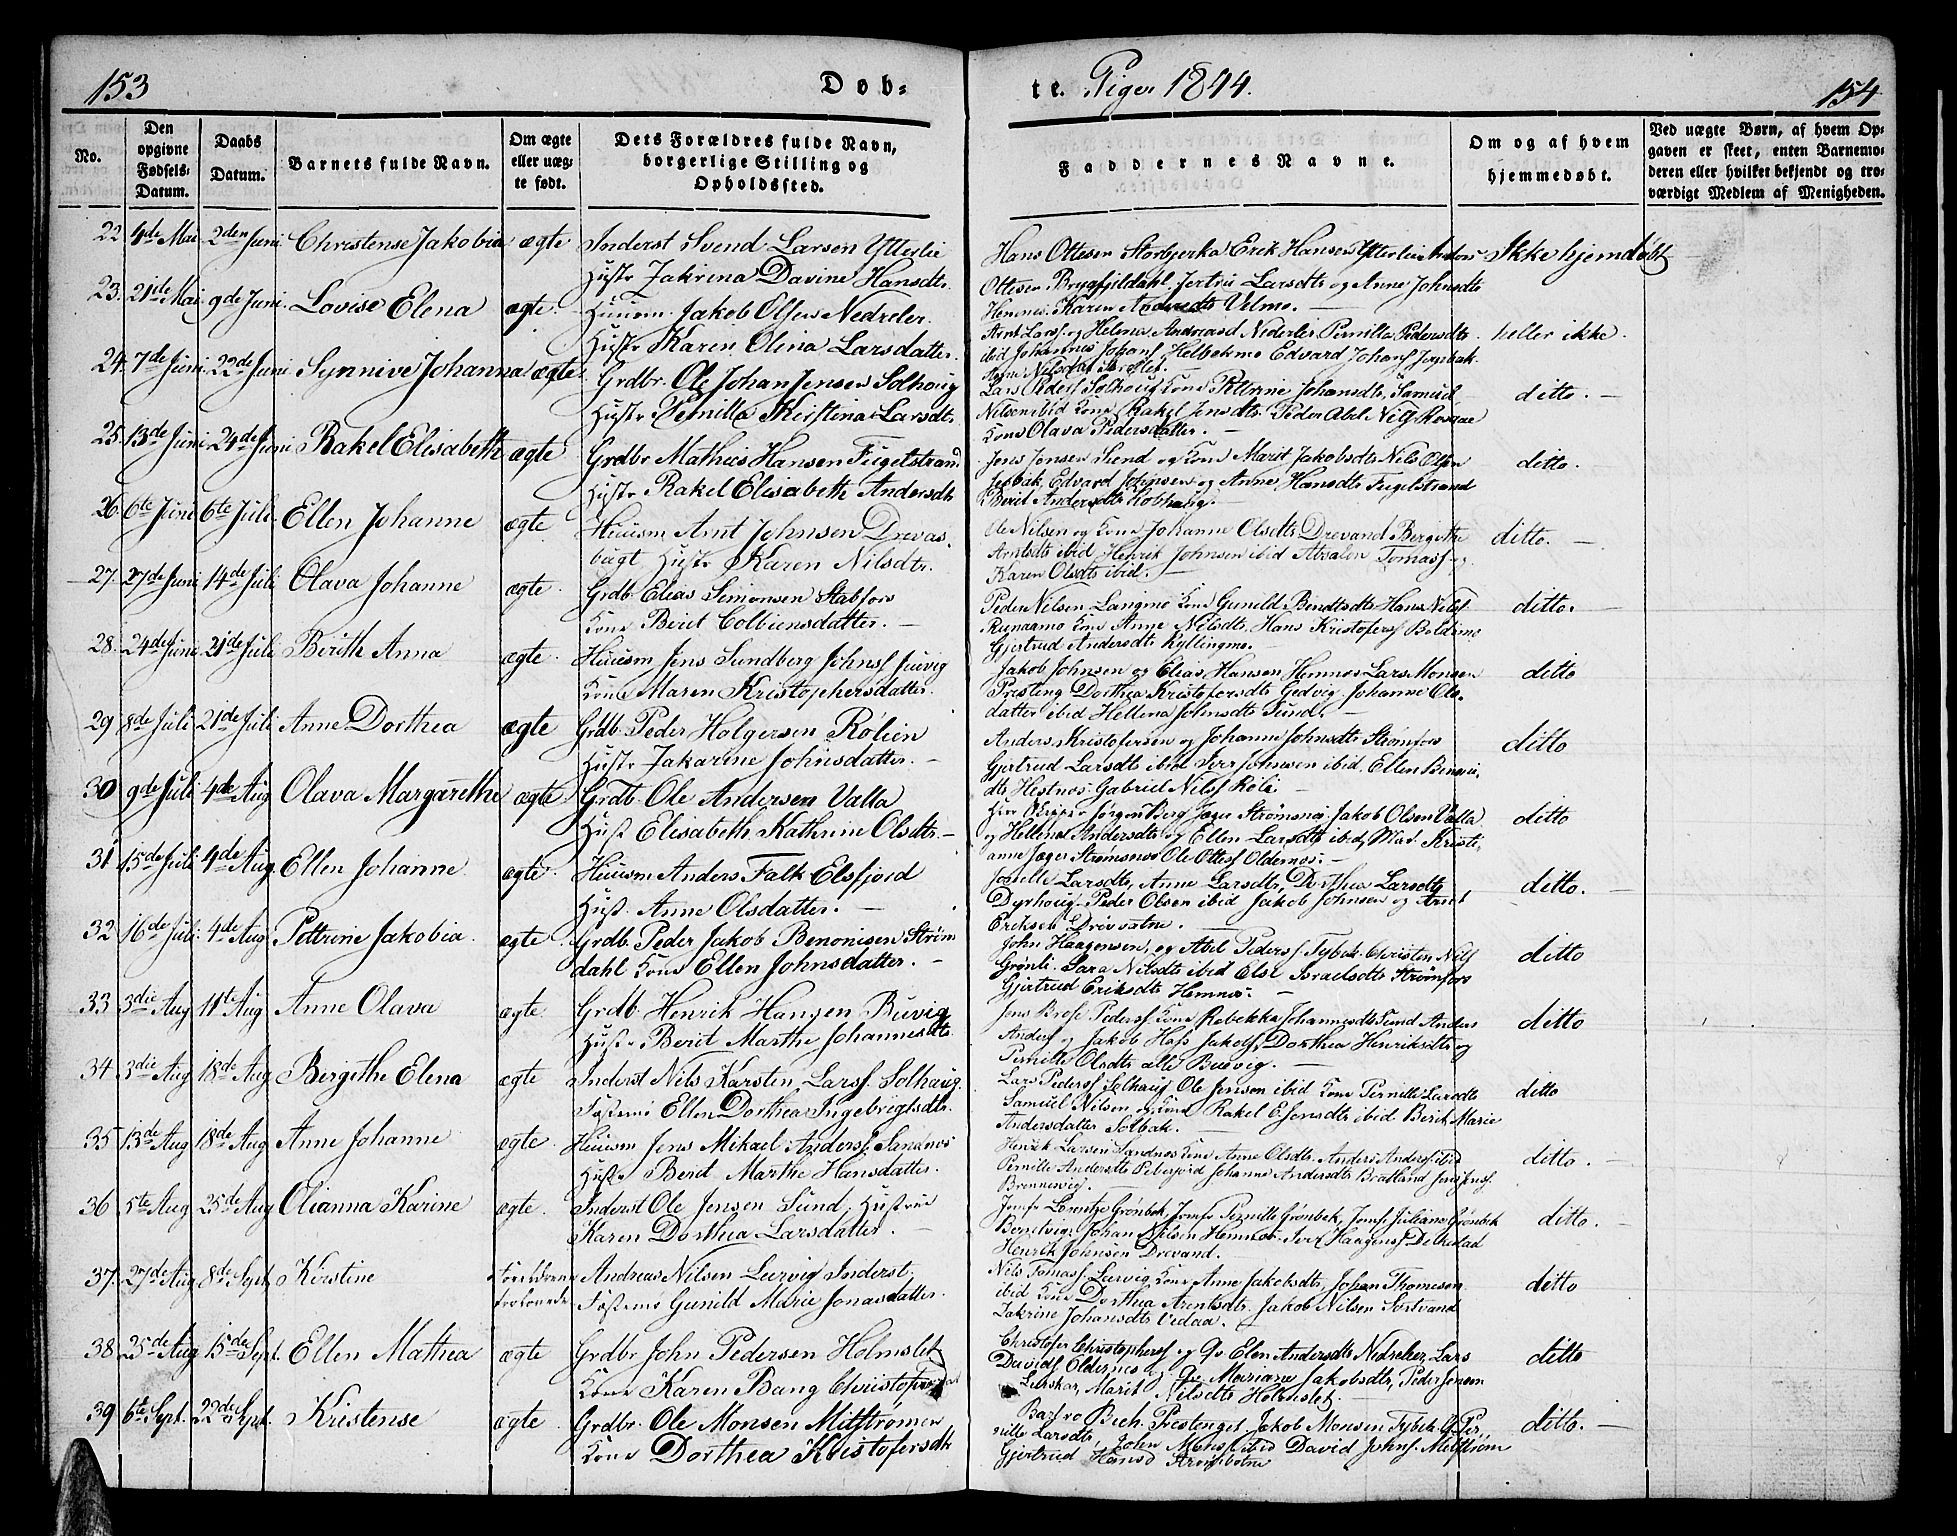 153
Døb-
te. Piger 1844.
154
No.
Den opgivne Fødsels-Datum.
Daabs Datum.
Barnets fulde Navn.
Om ægte eller uæg-te født.
Dets Forældres fulde Navn, borgerlige Stilling og Opholdssted.
Faddernes Navne.
Om og af hvem hjemmedøbt.
Ved uægte Børn, af hvem Op-gaven er skeet, enten Barnemo-deren eller hvilket bekjendt og tro-værdigt Medlem af Menigheden.
22 4de Mai 2den Juni Christense Jakobia ægte Inderst Svend Larsen Ytterlei
Hustr Jakrina Davine Hansdtr.
Hans Ottesen Storbjerka Erik Hansen Ytterlei Ikke hjemdøbt
Ottesen Brygfjeldahl, Jertru Larsdtr og Anne Johnsdtr
Hemnes. Karen Velmo.
23. 21de Mai 9de Juni. Lovise Elena ægte. Huusm. Jakob Olsen Nedreler.
Hustr Karen Olina Larsdatter.
Arnt Larss. og Helena Andreasd Nederler Pernilla Pedersdtr. heller ikke.
ibid Johannes Johans Helbekmo Edvard Johans
24. 7de Juni. 22de Juni Synnive Johanna ægte Grdbr. Ole Johan Jensen Solhoug
Hustr Pernilla Kerstina Larsdtr
Lars Peders Solhoug Kone Petterine Johansdtr, Samuel ditto.
Nilsen ibid Kone Rakel Jensdtr. Peder Abel Nils
Kone Olava Pedersdatter.
25. 13de Juni 24de Juni Rakel Elisabeth ægte Grdbr Mathias Hansen Fugelstrand
Hustr Rakel Elisabeth Andersdtr
Jens Jensen og Kone Marit Jakobsdtr Nils Olsen ditto.
Edvard Johnsen og Anne Hansdtr Fugelstrand
Berit Andersdtr
26. 6te Juni 6te Juli. Ellen Johanne ægte. Huusm Arnt Johnsen Drevas-
bugt Hustr Karen Nilsdtr.
Ole Nilsen og Kone Johanne Olsdtr Drevand Bergithe ditto.
Arntsdtr ibid Henrik Johnsen ibid Tomass og
Karen Olsdtr ibid.
27. 27de Juni 14de Juli Olava Johanne ægte. Grdb. Elias Simonsen Stabfors
Kone Berit Colbiensdatter.
Peder Nilsen Langmo Kone Gunild Bendtsdtr Hans Nils ditto.
Runaamo Kone Anne Nilsdtr, Hans Kristofers Boldermo
Gjertrud Andersdtr Kyllingmo.
28. 24de Juni 21de Juli Birithe Anna ægte. Huusm Jens Sundberg Johns Juvig
Kone Maren Kristophersdatter.
Jakob Johnsen og Elias Hansen Hemnes Lars Monsen ditto
Presteng Dorthea Kristofersdtr Gedvig Johanne Ols-
datter ibid Hellena Johnsdtr Sund.
29 8de Juli 21de Juli Anne Dorthea ægte Grdb. Peder Holgersen Rølien
Hustr Jakarine Johnsdatter.
Anders Kristofersen og Johanne Johnsdtr Strømfors ditto
Gjertrud Larsdtr ibid Iver Johnsen ibid. Ellen Benoni-
dtr Hestnes. Gabriel Nilss Røli
30 9de Juli 4de Aug Olava Margarethe ægte Grdb. Ole Andersen Valla
Hust Elisabeth Kathrine Olsdtr.
Jørgen Berg Jæger Strømsnes. Jakob Olsen Valla ditto
og Hellena Andersdtr og Ellen Larsdtr ibid, Mad. Kristi-
anne Jæger Strømsnes Ole Ottess Oldernes.
31 15de Juli 4de Aug. Ellen Johanne ægte. Huusm Anders Falk Elsfjord
Hust. Anne Olsdatter.
Larsdtr, Anne Larsdtr, Dorthea Larsdtr ditto.
Dyrhoug Peder Olsen ibid Jakob Johnsen og Arnt
Eriksen Drevvatne.
32 16de Juli 4de Aug Pettrine Jakobia. ægte. Grdb. Peder Jakob Benonisen Strøm
dahl Kone Ellen Johnsdatter.
John Haagensen, og Abel Peders. Tybek Christen Nils ditto
Grønli. Sara Nilsdtr ibid Else Israelsdtr Strømfors
Gjertrud Eriksdtr Hemnes.
33 3die Aug 11te Aug Anne Olava ægte. Grdb. Henrik Hansen Buvig
Hustr Berit Marthe Johannesdtr.
Jens Peders Kone Rebekka Johannesdtr Sund Anders ditto
Anders og Jakob Jakobs, Dorthea Henriksdtr og
Pernille Olsdtr alle Buevig.
34 3die Aug 18de Aug Bergithe Elena ægte Inderst Nils Karsten Larss. Solhaug.
Fæstemø Ellen Dorthea Ingebrigtsdtr.
Lars Peders Solhaug Ole Jensen ibid Kone Pernille Larsdtr ditto
Samuel Nilsen og Kone Rakel E. Jensdtr ibid Berit Marie
Andersdatter Solbak.
35 13de Aug 18de Aug Anne Johanne ægte. Huusm Jens Mikael Anders. Sandnes
Hustr Berit Marthe Hansdatter.
Henrik Larsen Sandnes Kone Anne Olsdtr. Anders Anders. ibid ditto.
Pernille Andersdtr Johanne Andersdtr Bratland Jens Jens
Brennesvig.
36 5te Aug 25de Aug Olianna Karine ægte. Inderst Ole Jensen Sund. Hustrue
Karen Dorthea Larsdatter.
Jomfr Lorentze Grønbek, Jomfr Pernille Grønbek, Jomfr Juliane Grønbek ditto.
Johan Nilsen Hemnes Iver Haagens
Henrik Johnsen Drevand.
37. 27de Aug 8de Sept. Kirstine Forældrene trolovede Andreas Nilsen Lurvig Inderst.
Fæstemø Gunild Marie Jonasdatter.
Nils Tomass Lurvig Kone Anne Jakobsdtr, Johan Thomesen ditto
ibid Kone Dorthea Arentsdtr. Jakob Nilsen Sortvand
Zakrine Johansdtr Vidaa.
38. 25de Aug 15de Sept. Ellen Mathea ægte Grdbr John Pedersen Holmslet
Kone Karen Bang Christofers
Christofer Christophers og Qv Elen Andersdtr Nedreleer, Lars ditto
Davids Oldernes og Qv Mariane Jakobsdtr, Peder Jensen
Lerskar, Marit Nilsdtr Holmslet.
39 6te Sept. 22de Sept. Kristense ægte Grdbr. Ole Monsen Mitstrømen
Kone Dorthea Kristofersdtr
Bech Prestenget Jakob Monsen Tybek Qv Per- ditto.
nille Larsdtr, John Monss ibid David Johns. Mitstrøm
Gjertrud Hansd Strømbotne